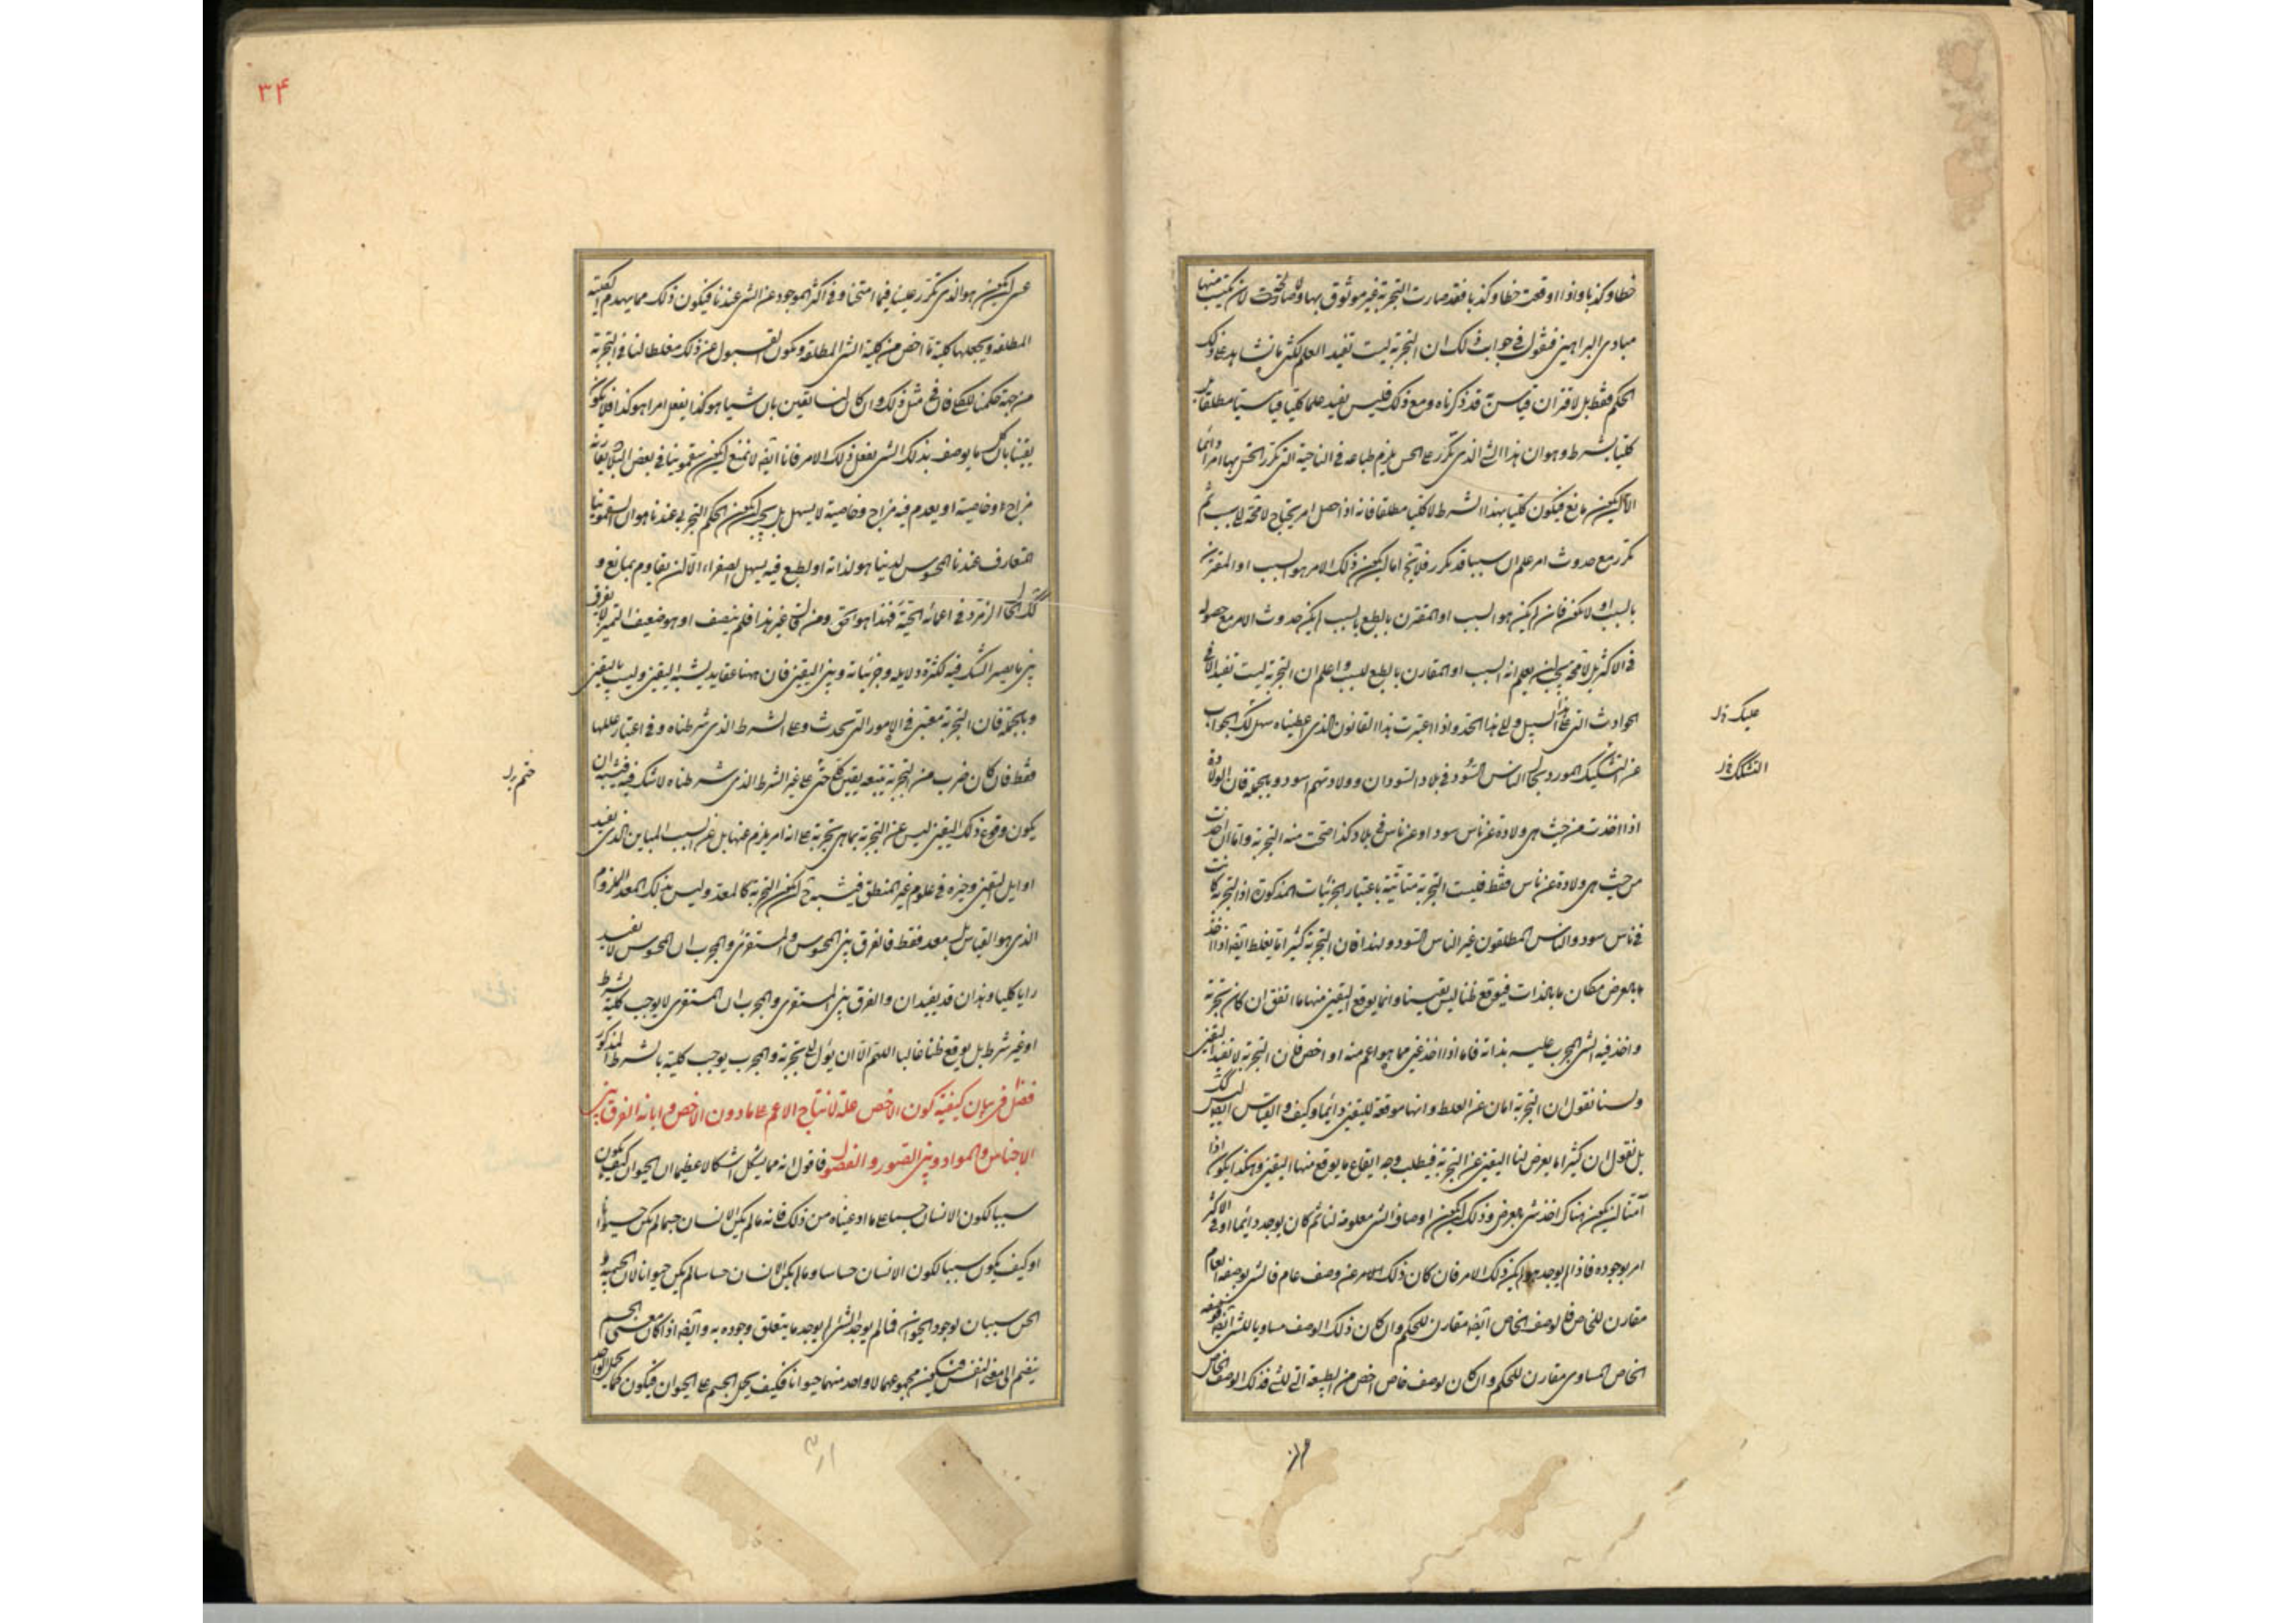 خطا وكذبا واذا اوقعت خطا وكذبا فقد صارت التجربة غير موثوق بها ولا صالحة لان تكتسب منها
مبادى البراهين فنقول فى جواب ذلك ان التجربة ليست تفيد العلم لكثرة ما يشاهد على ذلك
الحكم فقط بل لاقتران قياس به قد ذكرناه ومع ذلك فليس يفيد علما كليا قياسيا مطلقا بل
كليا بشرط وهو ان هذا الشئ الذى تكرر على الحس يلزم طباعه فى الناحية التى تكرر الحس بها امرا دائما
الا ان يكون مانع فيكون كليا بهذا الشرط لا كليا مطلقا فانه اذا حصل امر يحتاج لا محالة الى سبب ثم
تكرر مع حدوث امر علم ان سببا قد تكرر فلا يخ اما ان يكون ذلك الامر هو السبب او المقترن
بالسبب او لا يكون فان لم يكن هو السبب او المقترن بالطبع بالسبب لم يكن حدوث الامر مع حصوله
فى الاكثر بل لا محة يجب ان يعلم انه السبب او المقارن بالطبع للسبب واعلم ان التجربة ليست تفيد الا فى
الحوادث التى على هذا السبيل والى هذا الحد واذا اعتبرت هذا القانون الذى اعطيناه سهل لك الجواب
عن التشكيك المورد بحال الناس السود فى بلاد السودان وولادتهم اسود وبالجملة فان الولادة
اذا اخذت من حيث هى ولادة عن ناس سود او عن ناس فى بلاد كذا صحت منه التجربة واما ان اخذت
من حيث هى ولادة عن ناس فقط فليست التجربة متاتية باعتبار الجزئيات المذكورة اذ التجربة كانت
فى ناس سود والناس المطلقون غير الناس السود ولهذا فان التجربة كثيرا ما يغلط ايضا اذا اخذ
ما بالعرض مكان ما بالذات فيوقع ظنا ليس يقينا وانما يوقع اليقين منها ما اتفق ان كان تجربة
واخذ فيه الشئ المجرب عليه بذاته فاما اذا اخذ غيره مما هو اعم منه او اخص فان التجربة لا تفيد اليقين
ولسنا نقول ان التجربة امان عن الغلط وانها موقعة لليقين دائما وكيف والقياس ايضا ليس كك
بل نقول ان كثيرا ما يعرض لنا اليقين عن التجربة فيطلب وجه ايقاع ما يوقع منها اليقين وهكذا يكون اذا
امنا ان يكون هناك اخذ شئ بالعرض وذلك ان يكون اوصاف الشئ معلومة لنا ثم كان يوجد دائما او فى الاكثر
امر بوجوده فاذا لم يوجد هو لم يكن ذلك الامر فان كان ذلك الامر عن وصف عام فالشئ بوصفه العام
مقارن للخاص فالوصف الخاص ايضا مقارن للحكم وان كان ذلك الوصف مساويا للشئ ايضا فوصفه
الخاص المساوى مقارن للحكم وان كان لوصف خاص اخص من الطبيعة التى للشئ فذلك الوصف الخاص
عليك نه ل
التشكك نه ل
٣۴
عسى ان يكون هو الذى تكرر علينا فيما امتحنا وفى اكثر الموجود عن الشئ عندنا فيكون ذلك مما يهدم الكلية
المطلقة ويجعلها كلية ما اخص من كلية الشئ المطلقة ويكون الغفول عن ذلك مغلطا لنا فى التجربة
من جهة حكمنا الكلى فانا فى مثل ذلك وان كان لنا يقين بان شيئا هو كذا يفعل امرا هو كذا فلا يكون
يقينا بان كل ما يوصف بذلك الشئ يفعل ذلك الامر فانا ايضا لا نمنع ان يكون سقمونيا فى بعض البلاد يقارنه
مزاج او خاصية او يعدم فيه مزاج وخاصية لا يسهل بل يجب ان يكون الحكم التجربى عندنا هو ان السقمونيا
المتعارف عندنا المحسوس لدينا هو لذاته او لطبع فيه يسهل الصفراء الا ان يقاوم بمانع و
كك حال الزمرد فى اعمائه الحية فهذا هو الحق ومن قال غير هذا فلم ينصف او هو ضعيف التميز لا يفرق
بين ما يعسر الشك فيه لكثرة دلايله وجزئياته وبين اليقين فان ههنا عقايد يشبه اليقين وليست باليقين
وبالجملة فان التجربة معتبرة فى الامور التى تحدث وعلى الشرط الذى شرطناه وفى اعتبار عللها
فقط فان كان ضرب من التجربة يتبعه يقين كلى حتى على غير الشرط الذى شرطناه لا شك فيه فيشبه ان
يكون وقوع ذلك اليقين ليس عن التجربة بما هى تجربة على انه امر يلزم عنها بل عن السبب المباين الذى يفيد
اوايل اليقين وخبره فى علوم غير المنطق فيشبه ح ان يكون التجربة كالمعد وليس بذلك المعد الملزم
الذى هو القياس بل معد فقط فالفرق بين المحسوس والمستقرئ والمجرب ان المحسوس لا يفيد
رايا كليا وهذان قد يفيدان والفرق بين المستقرئ والمجرب ان المستقرئ لا يوجب كلية بشرط
او غير شرط بل يوقع ظنا غالبا اللهم الا ان يؤل الى تجربة والمجرب يوجب كلية بالشرط المذكور
فصل فى بيان كيفية كون الاخص علة لانتاج الاعم على ما دون الاخص وابانة الفرق بين
الاجناس والمواد وبين الصور والفصول فاقول انه مما يشكل اشكالا عظيما ان الحيوان كيف يكون
سببا لكون الانسان جسما على ما ادعيناه من ذلك فانه ما لم يكن الانسان جسما لم يكن حيوانا
او كيف يكون سببا لكون الانسان حساسا وما لم يكن الانسان حساسا لم يكن حيوانا لان الجسمية و
الحس سببان لوجود الحيوان فما لم يوجد الشئ لم يوجد ما يتعلق وجوده به وايضا اذا كان معنى الجسم
ينضم الى معنى النفس فيكون مجموعهما لا واحد منهما حيوانا فكيف يحمل الجسم على الحيوان فيكون كما يحمل الواحد